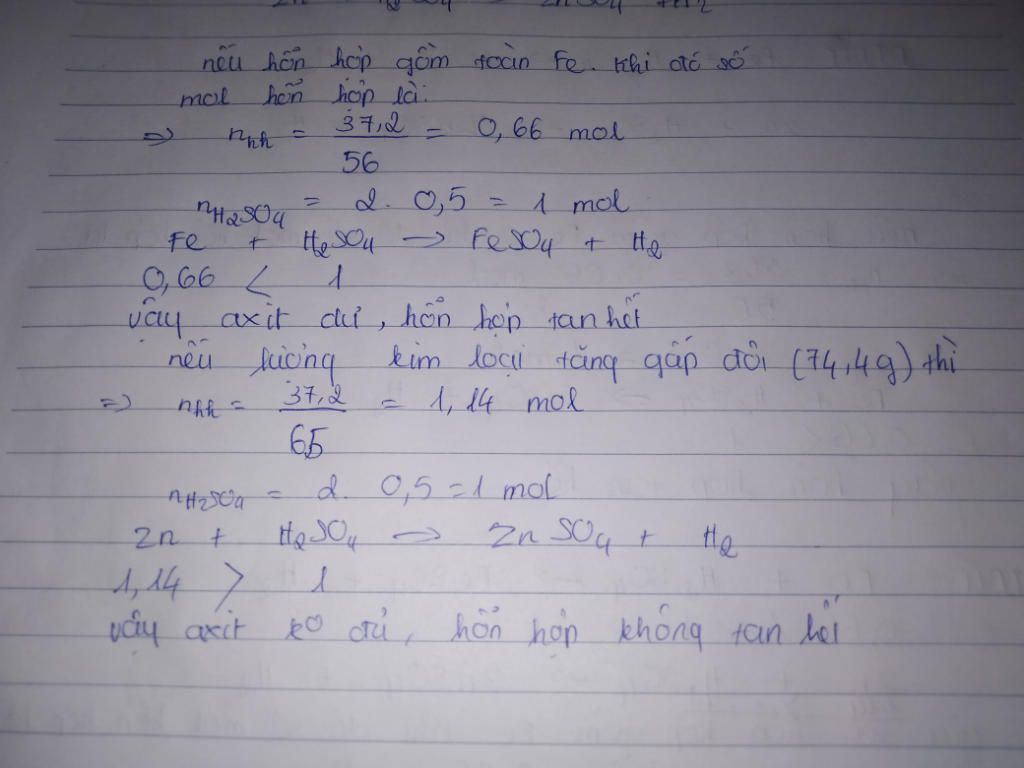 nếu hỗn hợp gồm toàn Fe. Khi đó số
mol hỗn hợp là:
=> nhh = 37,2 / 56 = 0,66 mol
nH2SO4 = 2. 0,5 = 1 mol
Fe + H2SO4 → FeSO4 + H2
0,66 < 1
vậy axit dư, hỗn hợp tan hết
nếu lượng kim loại tăng gấp đôi (74,4g) thì
=> nhh = 37,2 / 65 = 1,14 mol
nH2SO4 = 2. 0,5 = 1 mol
Zn + H2SO4 → ZnSO4 + H2
1,14 > 1
vậy axit ko đủ, hỗn hợp không tan hết